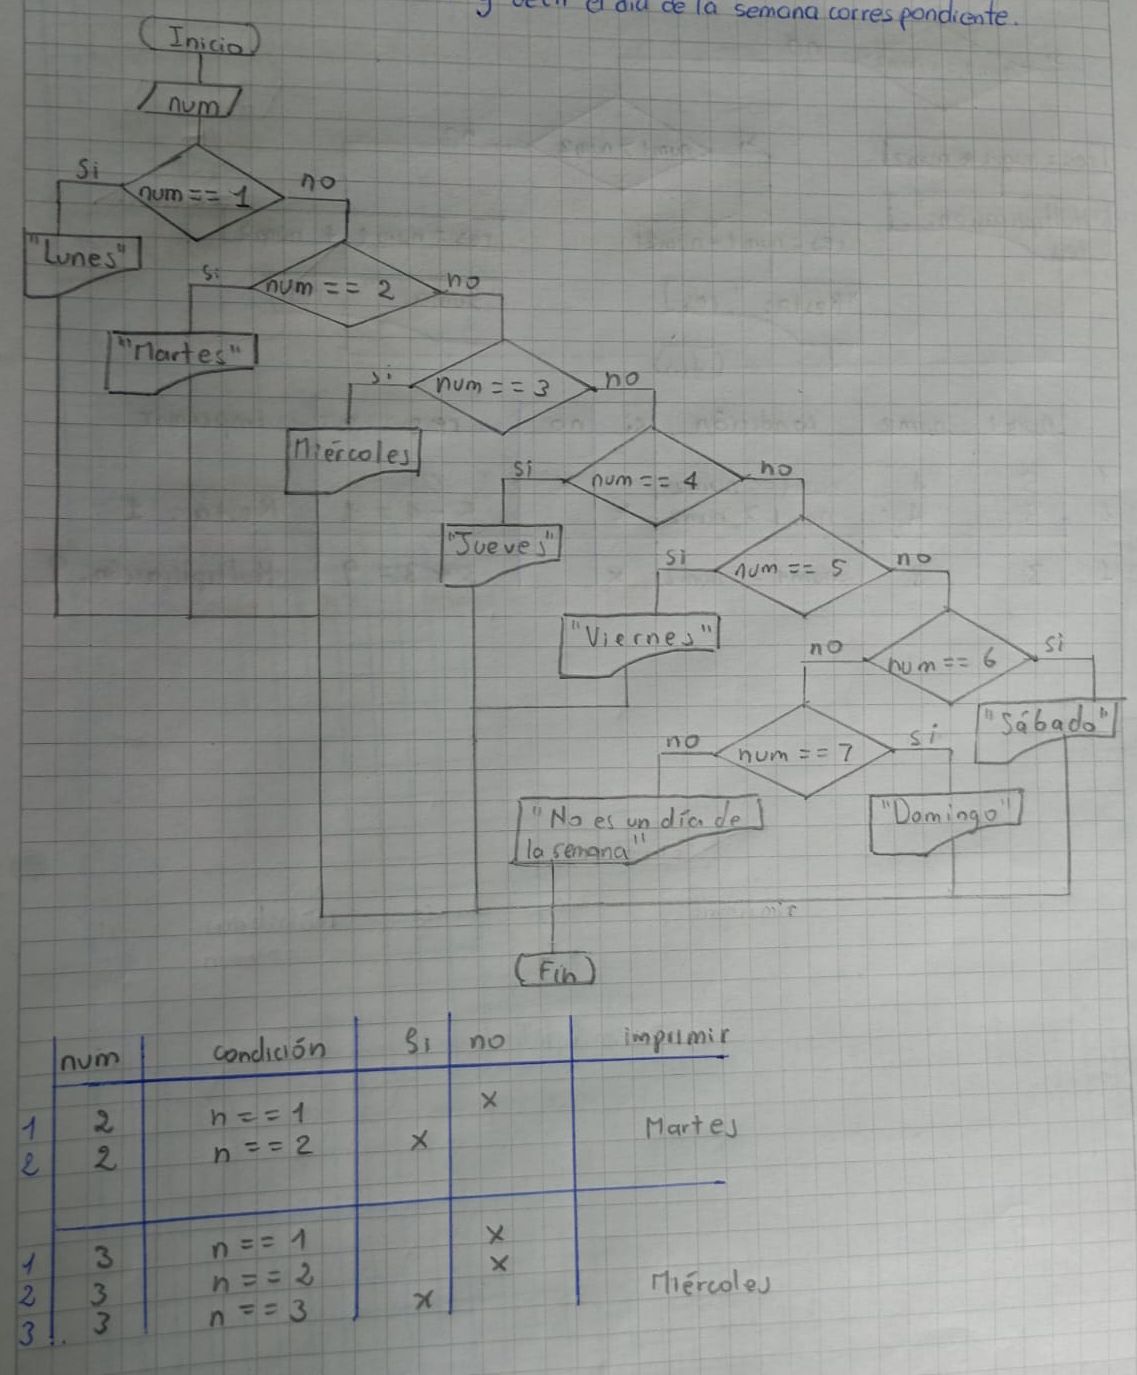 el día de la semana correspondiente.
Inicio
num
si
num == 1
no
"Lunes"
si
num == 2
no
"Martes"
si
num == 3
no
Miércoles
si
num == 4
no
"Jueves"
si
num == 5
no
"Viernes"
no
num == 6
si
"Sábado"
no
num == 7
si
"No es un día de
la semana"
"Domingo"
Fin
num condición Si no imprimir
1 2 n == 1 x
2 2 n == 2 x Martes
1 3 n == 1 x
2 3 n == 2 x Miércoles
3 3 n == 3 x